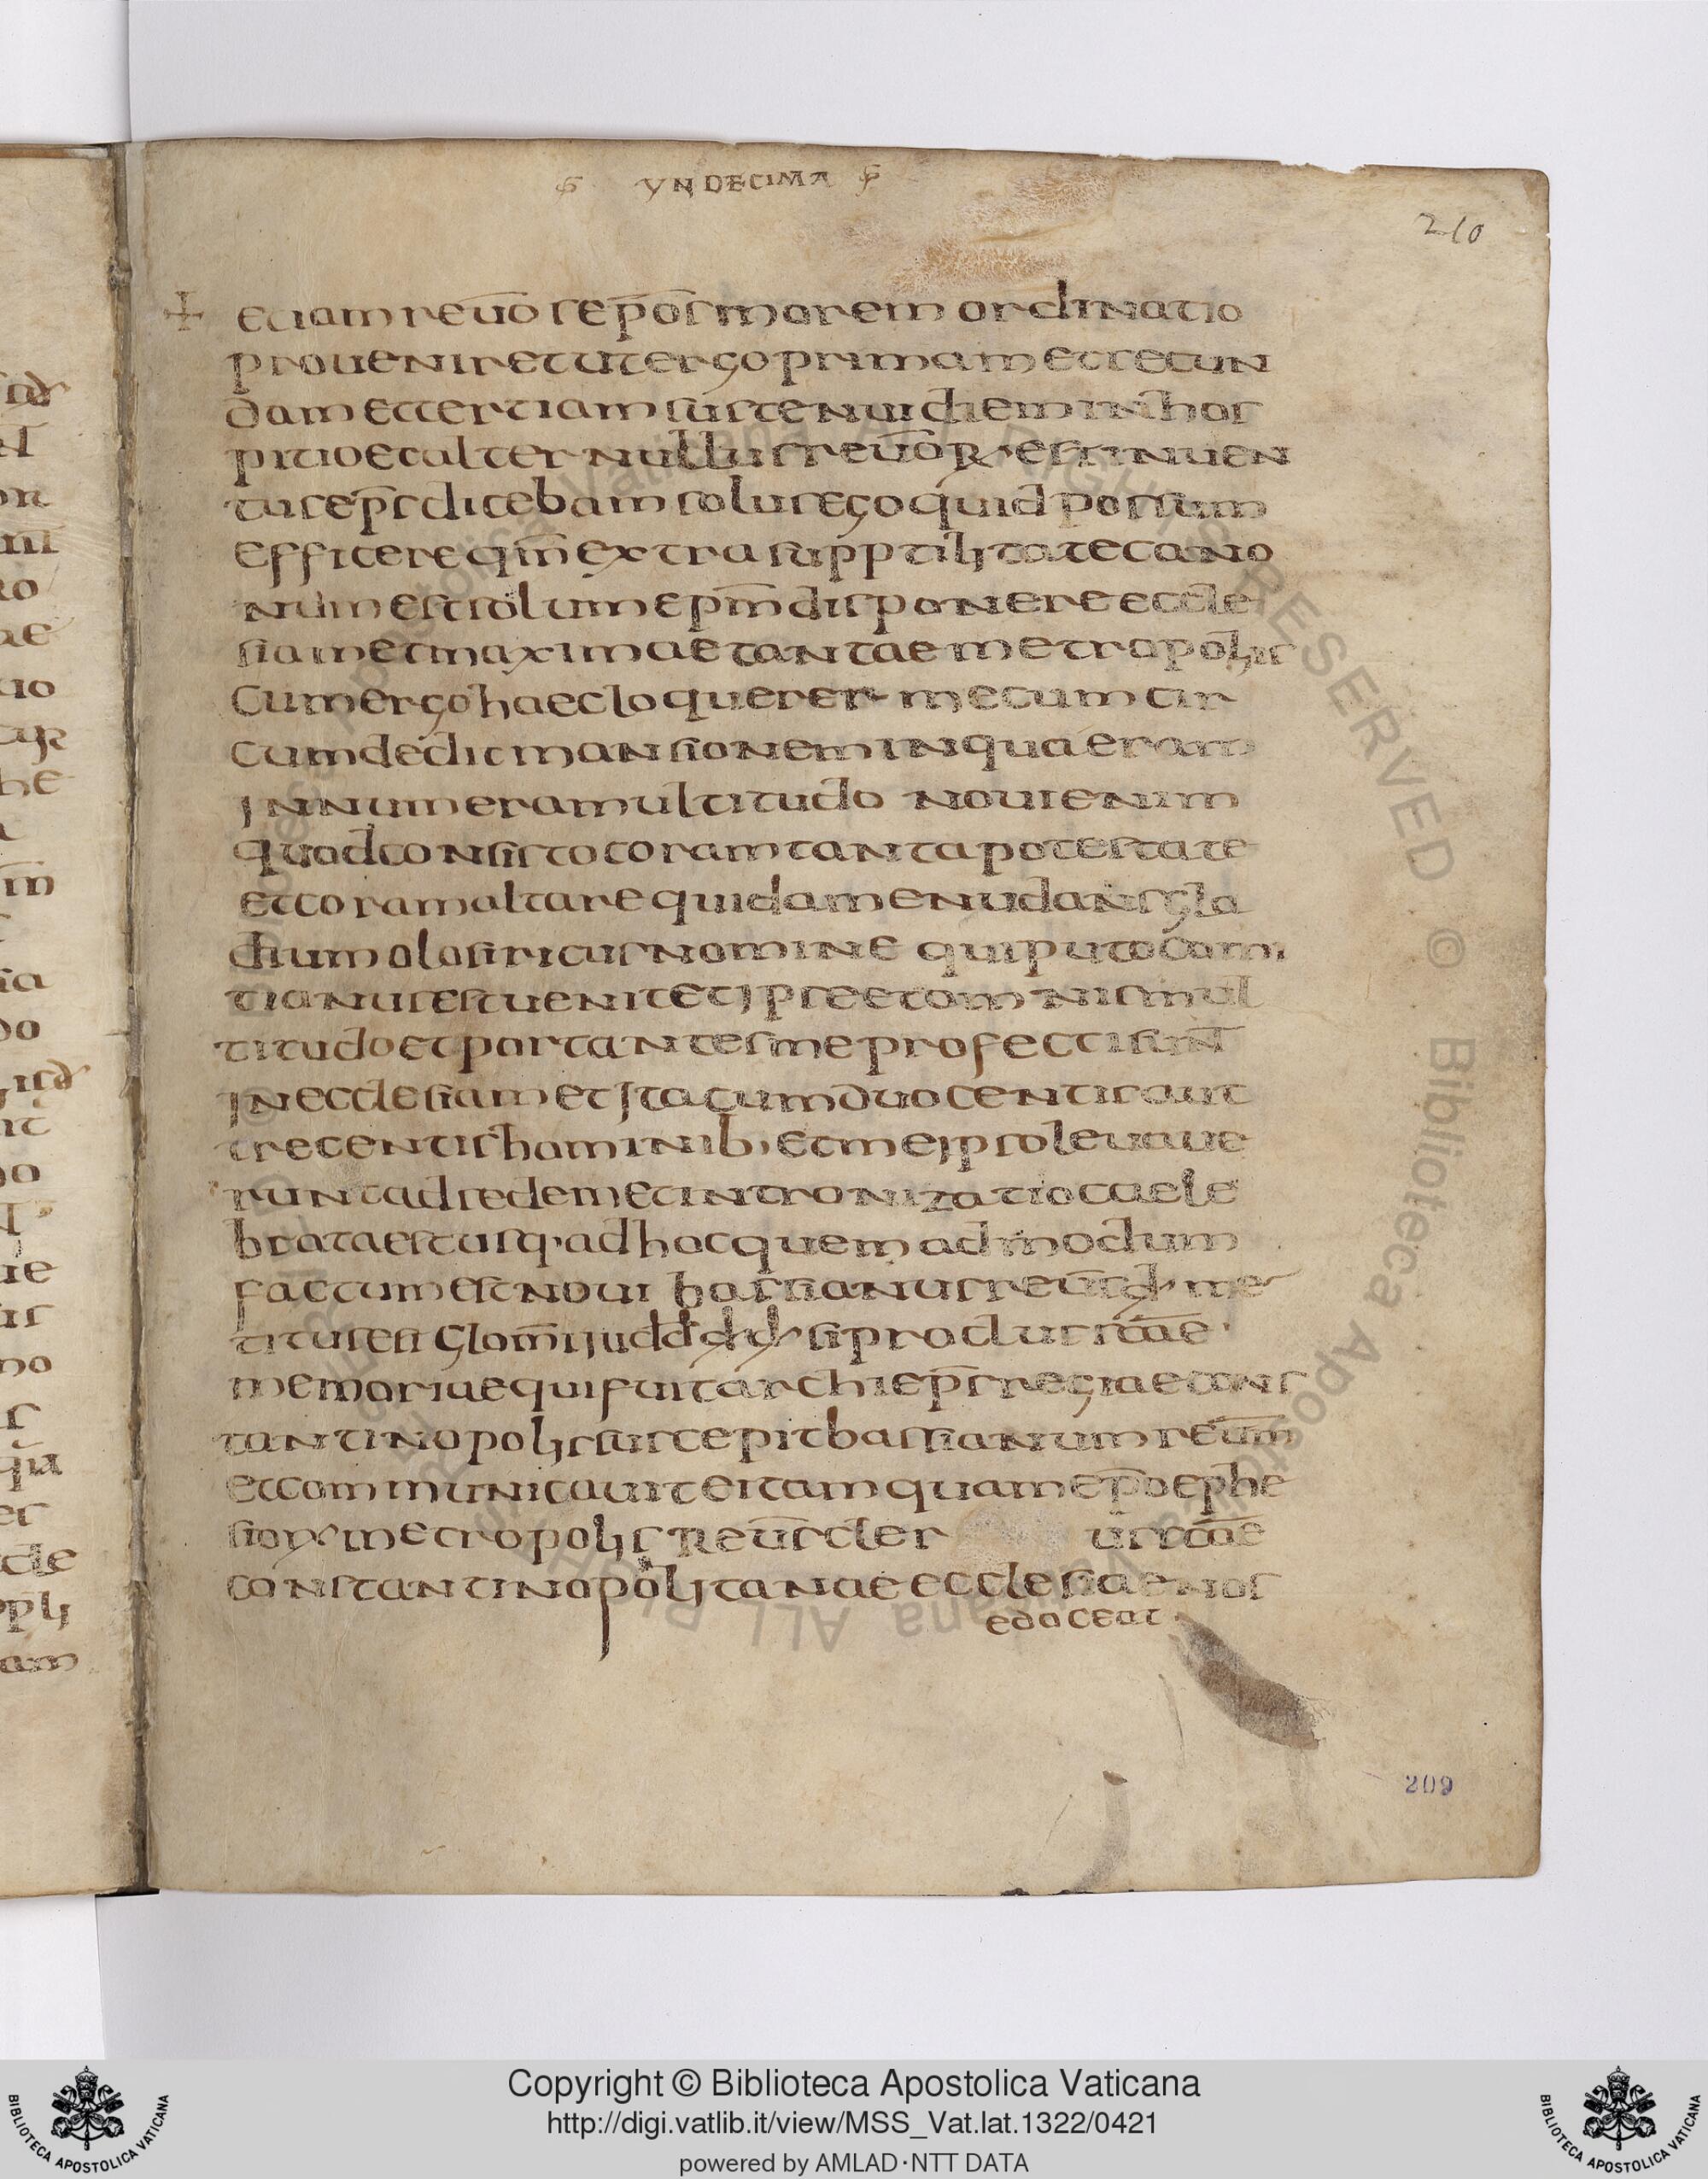 YNDECIMA
210
etiam reuō s ep̄os morem ordinatio
prouenire tuter go primam et secun
dam et tertiam sustenui diem in hos
pitio et alter nullus reuōR est inuen
tus ep̄s dicebam solus ego quid possum
efficere qm̄ ex tra supptilitate cano
num est solum ep̄m disponere eccle
siam et maximae tantae metropolis
Cum ergo haec loquerer mecum cir
cumdedit mansionem in qua eram
Innumera multitudo noui enim
quod consisto coram tanta potestate
et coram altare quidam enudans gla
dium olosiricus nomine qui puto Com
tianus est uenit et ipse et omnis mul
titudo et portantes me profecti sun̄t
In ecclesiam et Ita cum duocentis aut
trecentis hominib, et me ipso leuaue
runt ad sedem et introniza tio caele
brata est usq· ad hoc quem ad modum
factum est noui bassianus reūs
titus est
memoriae qui fuit archiep̄s regiae cons
tantinopolis suscepit bassianum reūm
et communicauit ei tamquam ep̄o ephe
metropolis Reūs cler ūs
constantinopolitanae ecclesiae nos
edoceat
209
Copyright © Biblioteca Apostolica Vaticana
http://digi.vatlib.it/view/MSS_Vat.lat.1322/0421
powered by AMLAD·NTT DATA
BIBLIOTECA APOSTOLICA VATICANA
BIBLIOTECA APOSTOLICA VATICANA